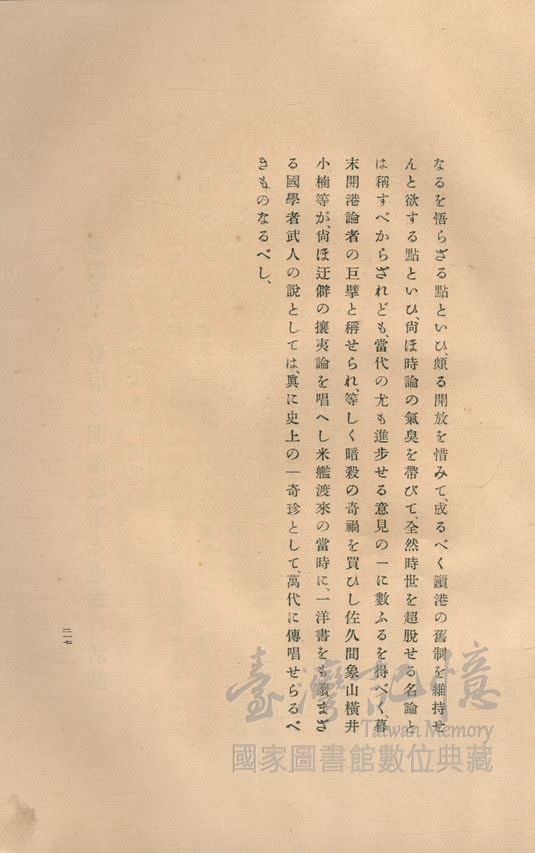 なるを悟らざる點といひ、頗る開放を惜みて、成るべく鎖港の舊制を維持せ
んと欲する點といひ、尙ほ時論の氣臭を帶びて、全然時世を超脫せる名論と
は稱すべからざれども、當代の尤も進步せる意見の一に數ふるを得べく、幕
末開港論者の巨擘と稱せられ、等しく暗殺の奇禍を買ひし佐久間象山橫井
小楠等が、尙ほ迂僻の攘夷論を唱へし米艦渡來の當時に、一洋書をも讀まざ
る國學者武人の說としては、眞に史上の一奇珍として、萬代に傳唱せらるべ
きものなるべし、
二一七
臺灣記憶
Taiwan Memory
國家圖書館數位典藏